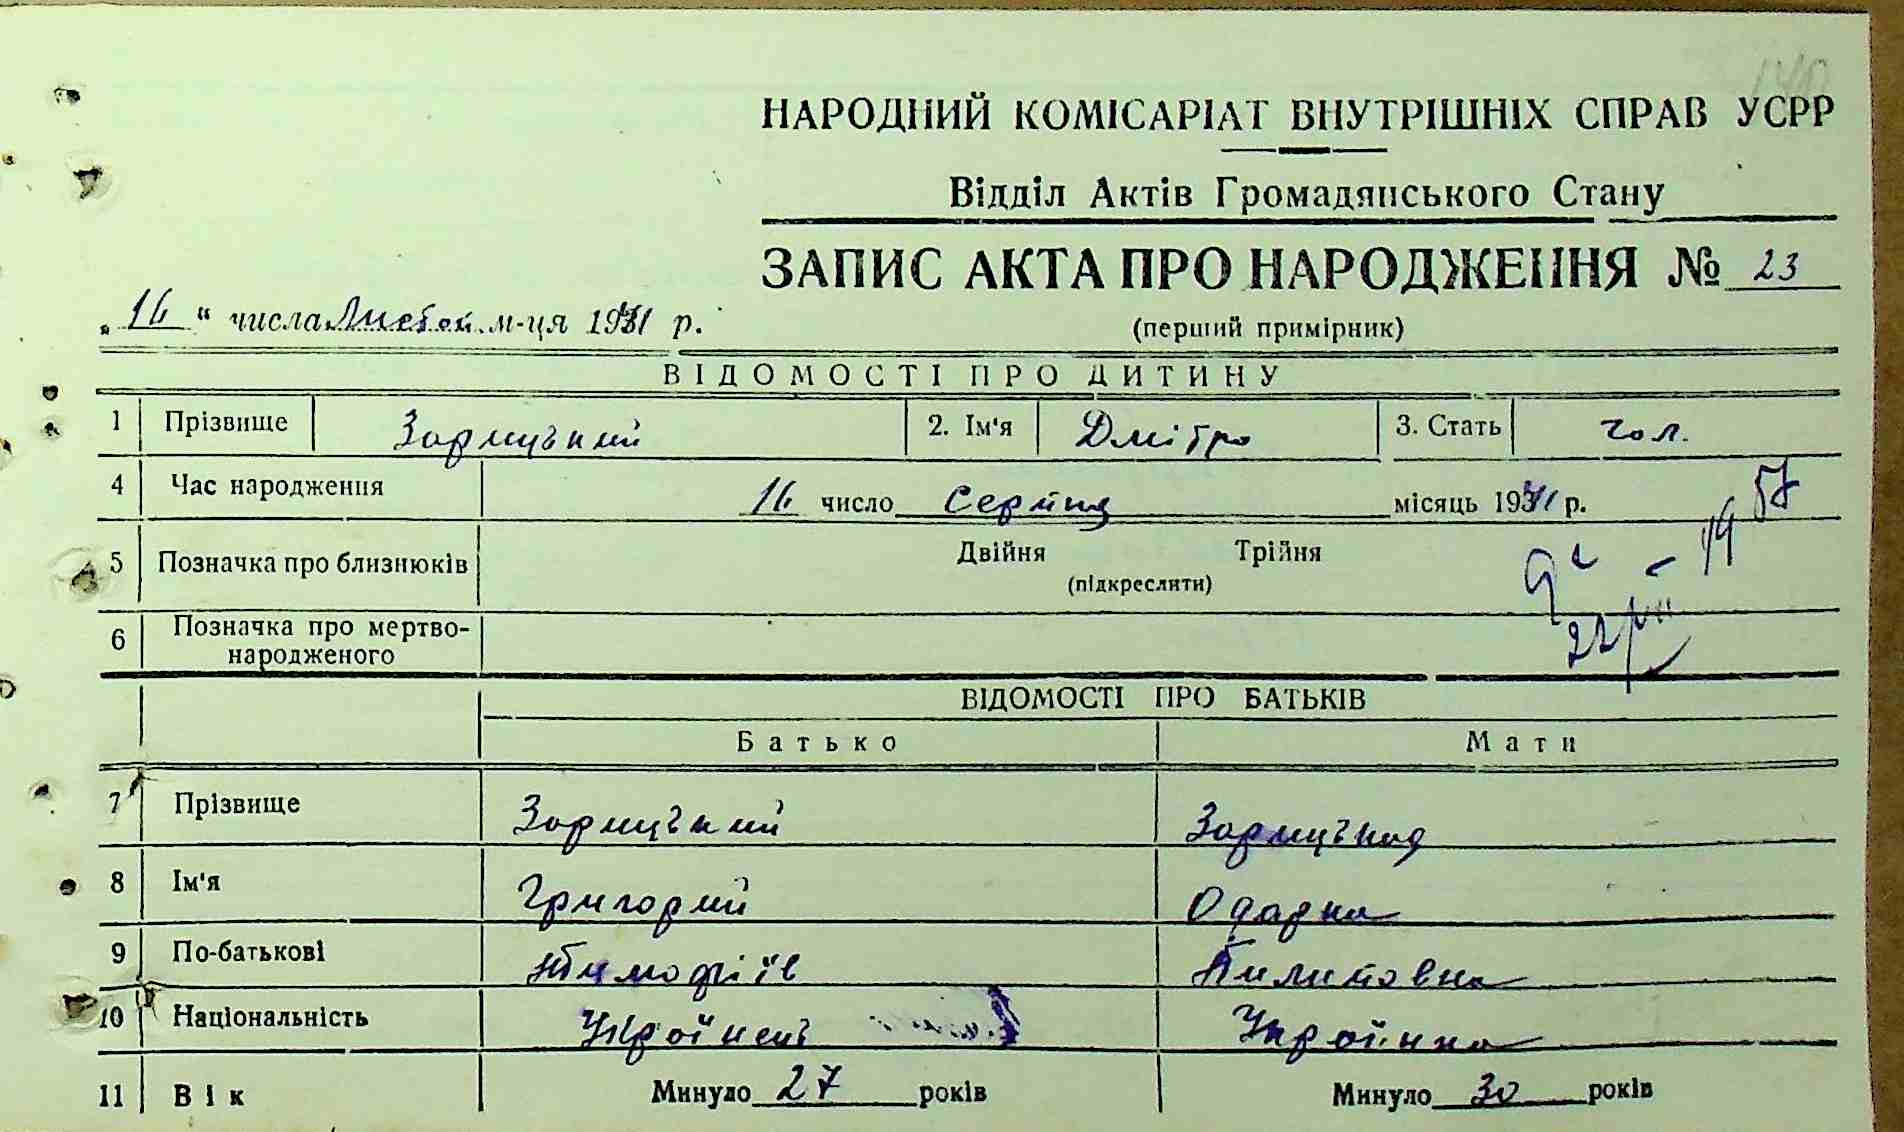 140
НАРОДНИЙ КОМІСАРІАТ ВНУТРІШНІХ СПРАВ УСРР
Відділ Актів Громадянського Стану
ЗАПИС АКТА ПРО НАРОДЖЕННЯ № 23
„16“ числа м-ця 1941 р. (перший примірник)
ВІДОМОСТІ ПРО ДИТИНУ
1 Прізвище Зармуцкий 2. Ім'я Дмітро 3. Стать чол.
4 Час народження 16 число Серпня місяць 1941 р.
5 Позначка про близнюків Двійня Трійня
(підкреслити)
6 Позначка про мертво-
народженого
ВІДОМОСТІ ПРО БАТЬКІВ
Батько Мати
7 Прізвище Зармуцкий Зармуцкая
8 Ім'я Григорий Одарка
9 По-батькові Тимофіїв Пилиповна
10 Національність Українець Українка
11 Вік Минуло 27 років Минуло 30 років